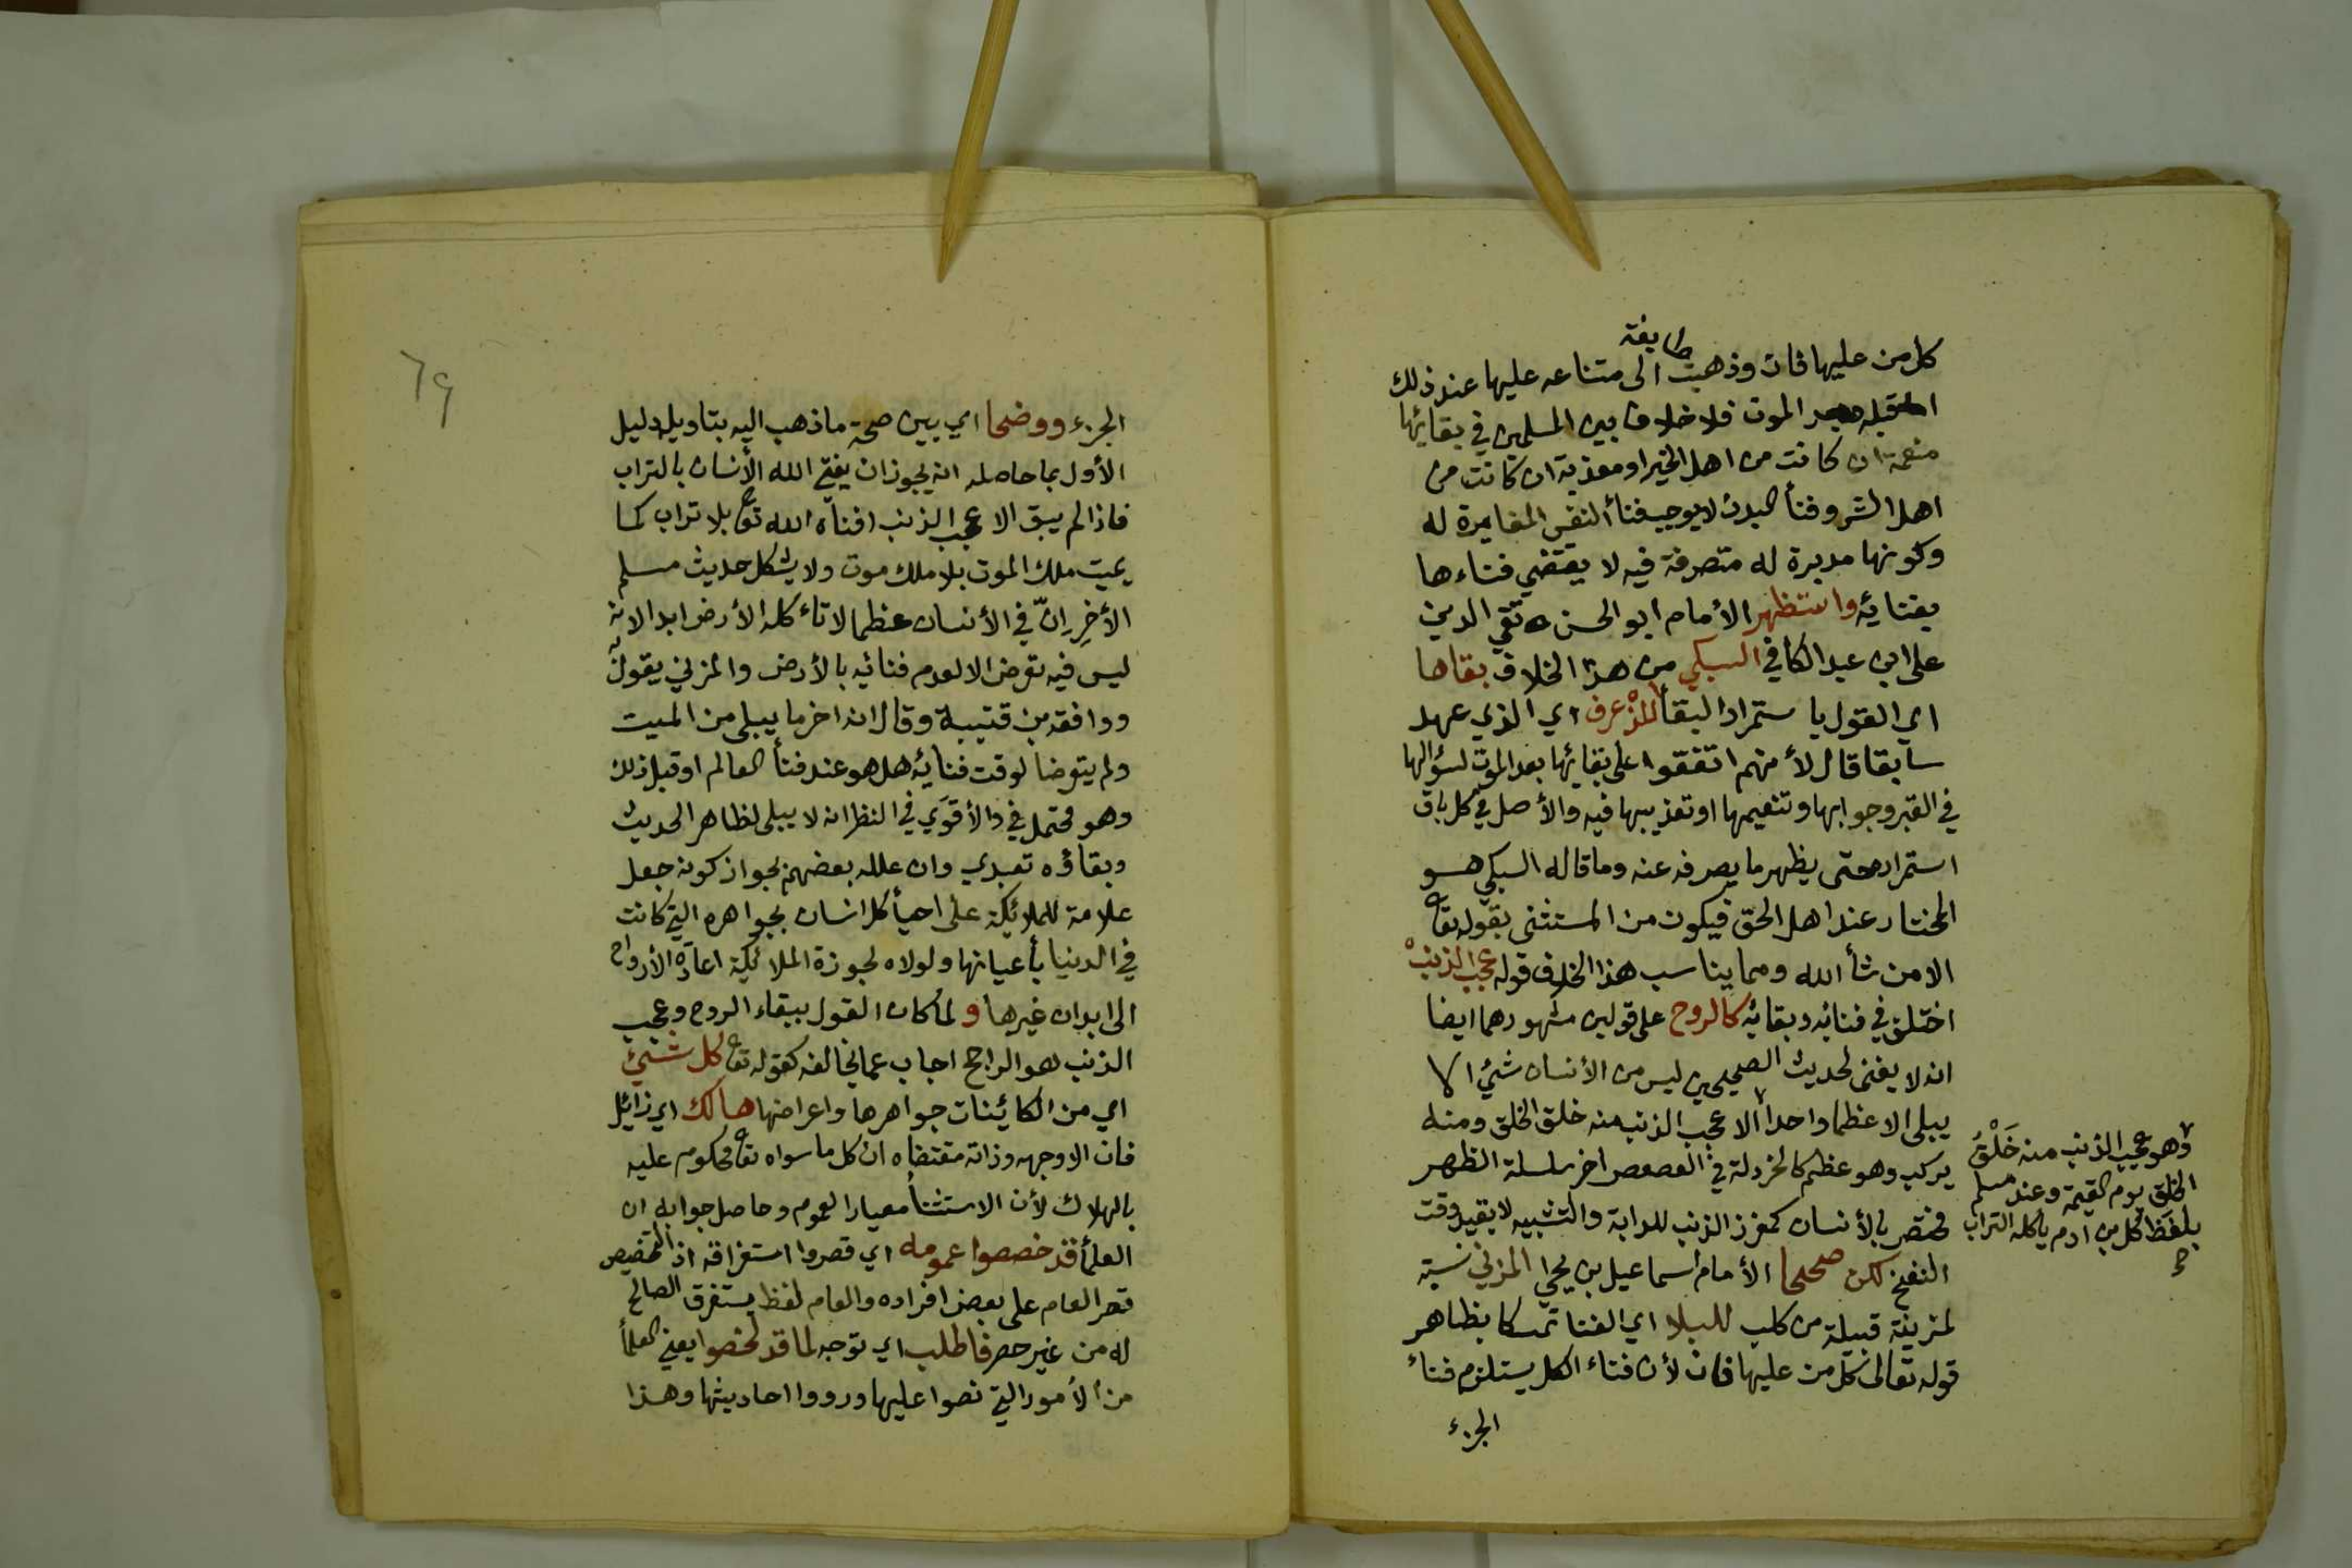 طايفة
كل من عليها فان وذهبت الى متناعه عليها عند ذلك
الموت فلا خلاف بين المسلمين في بقائها
منعمة ان كانت من اهل الخير او معذبة ان كانت من
اهل الشر وفنأ البدن لا يوجب فنأ النفس المغايرة له
وكونها مدبرة له متصرفة فيه لا يقتضي فناءها
بفنائه واستظهر الأمام ابو الحسن تقي الدين
على ابن عبد الكافي السبكي من هذا الخلاف بقاها
اي القول باستمرار البقأ للذْ عرف اي الذي عهد
سابقا قال لأنهم اتفقوا على بقائها بعد الموت لسؤالها
في القبر وجوابها وتنعيمها او تعذيبها فيه والأصل في كل باق
استمراره حتى يظهر ما يصرفه عنه وما قاله السبكي هو
المختار عند اهل الحق فيكون من المستثنى بقوله تعا
الا من شأ الله ومما يناسب هذا الخلاف قوله عجب الذنبْ
اختلف في فنائه وبقائه كالروح على قولين مشهورهما ايضا
انه لا يفنى لحديث الصحيحين ليس من الأنسان شئ الا
يبلى الا عظما واحدا الا عجب الذنب منه خلق الخلق ومنه
يركب وهو عظم كالخردلة في العصعص اخر سلسلة الظهر
مختص بالأنسان كمغرز الذنب للدابة والتشبيه لا بقيد وقت
النفخ لكن صححا الأمام اسماعيل بن يحيا المزني نسبة
لمزينة قبيلة من كلب للبلا اي الفنا تمسكا بظاهر
قوله تعالى كل من عليها فان لأن فناء الكل يستلزم فناء
الجزء
وهو عجب الذنب منه خَلْقُ
الخلق يوم القيمة وعند مسلم
بلفظ كل بن ادم ياكله التراب
صح
٦٩
الجزء ووضحا اي بين صحة ما ذهب اليه بتاويل دليل
الأول بما حاصله انه يجوز ان يفني الله الأنسان بالتراب
فاذا لم يبق الا عجب الذنب افناه الله تعا بلا تراب كما
يميت ملك الموت بلا ملك موت ولا يشكل حديث مسلم
الأخر اِنّ في الأنسان عظما لا تاء كله الأرض ابدا لانه
ليس فيه تعرض الا لعدم فنائه بالأرض والمزني يقول به
ووافقه بن قتيبة وقال انه اخر ما يبلى من الميت
ولم يتعرضا لوقت فنائه هل هو عند فنأ العالم او قبل ذلك
وهو محتمل في والأقوَي في النظر انه لا يبلى لظاهر الحديث
وبقاؤه تعبدي وان علله بعضهم بجواز كونه جعل
علامة للملائكة على احيأ كل انسان بجواهره التي كانت
في الدنيا بأعيانها ولولاه لجوزة الملائكة اعادة الأرواح
الى ابدان غيرها ولما كان القول ببقاء الروح وعجب
الذنب هو الراجح اجاب عما يخالفه كقوله تعا كل شئ
اي من الكائنات جواهرها واعراضها هالك اي زائل
فان الا وجهه وذاته مقتضاه ان كل ما سواه تعا محكوم عليه
بالهلاك لأن الاستثنأ معيار العموم وحاصل جوابه ان
العلمأ قد خصصوا عمومه اي قصروا استغراقه اذ التخصيص
قصر العام على بعض افراده والعام لفظ يستغرق الصالح
له من غير حصر فاطلب اي توجه لما قد لخصوا يعني العلمأ
من الأمور التي نصوا عليها ورووا احاديثها وهذا